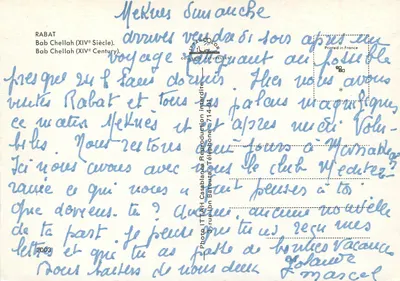 RABAT
Bab Chellah (XIVᵉ Siècle).
Bab Chellah (XIVᵉ Century).
Printed in France
Meknes Dimanche
arrivés vendredi soir après un
voyage au possible
presque 24 h sans dormir. Hier nous avons
visités Rabat et tous ses palais magnifiques
ce matin Meknes et cet après midi Volu-
bilis. Nous restons jours à Marrakec
Ici nous avons avec nous le club Mediter-
ranée ce qui nous a fait penser à toi
Que deviens-tu ? aucune nouvelle
de ta part. Je pense que tu as reçu mes
lettres et que tu as passé de bonnes vacances
Bons baisers de nous deux
Yolande
Marcel